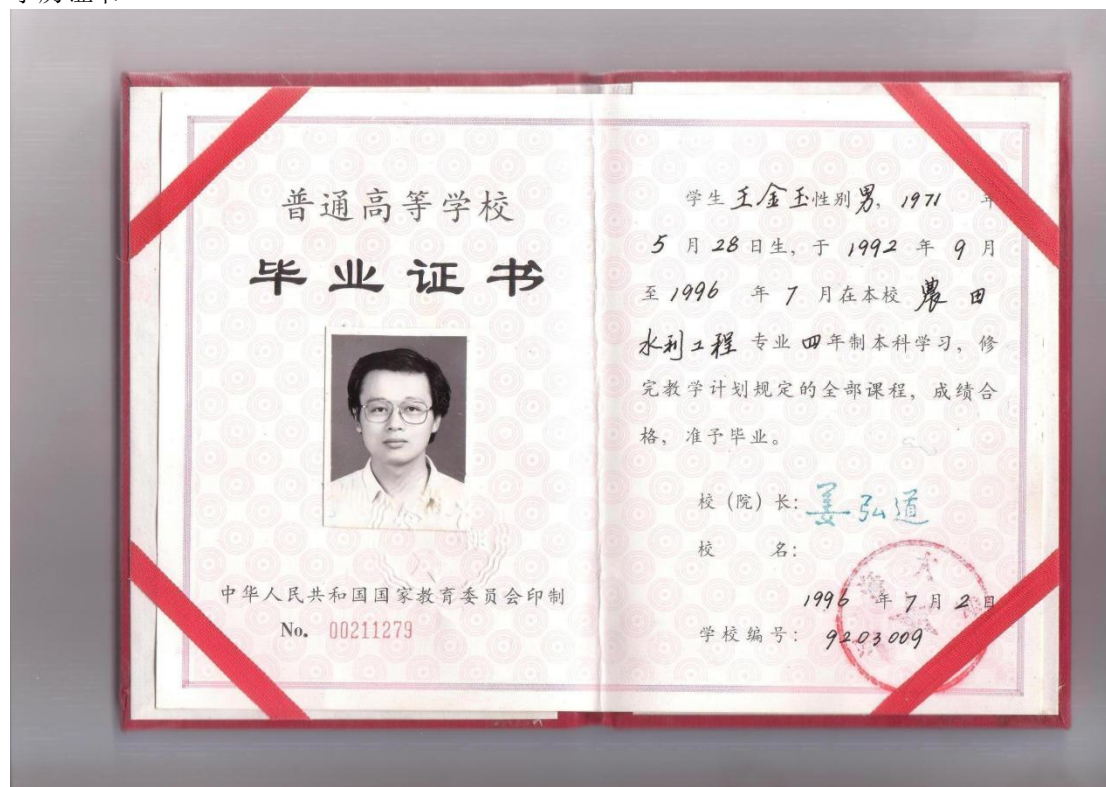 普通高等学校
毕业证书
中华人民共和国国家教育委员会印制
No. 00211279
学生王金玉性别男, 1971 年
5 月 28 日生, 于 1992 年 9 月
至 1996 年 7 月在本校 農 田
水利工程 专业 四年制本科学习, 修
完教学计划规定的全部课程, 成绩合
格, 准予毕业。
校(院)长: 姜弘道
校 名:
1996 年 7 月 2 日
学校编号: 9203009